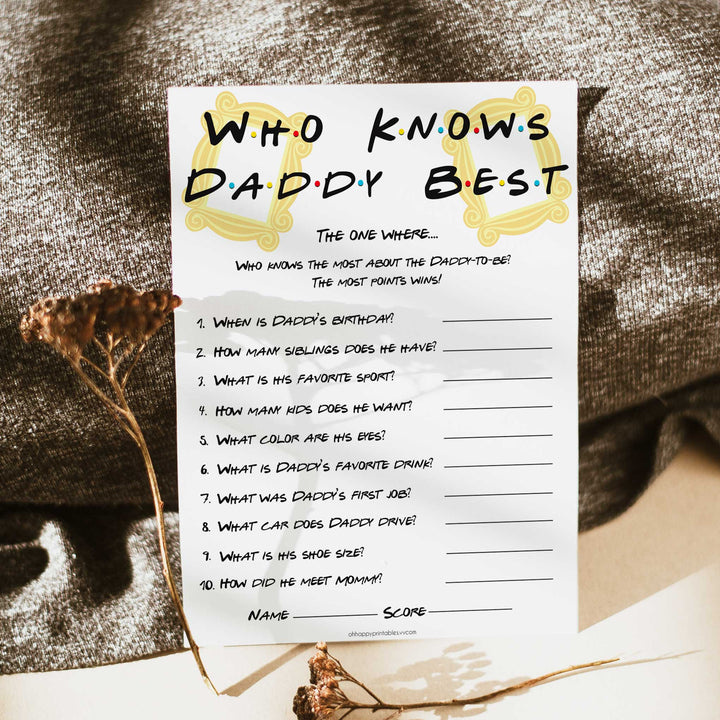 W·H·O K·N·O·W·S
D·A·D·D·Y B·E·S·T
THE ONE WHERE....
WHO KNOWS THE MOST ABOUT THE DADDY-TO-BE?
THE MOST POINTS WINS!
1. WHEN IS DADDY'S BIRTHDAY? ____
2. HOW MANY SIBLINGS DOES HE HAVE? ____
3. WHAT IS HIS FAVORITE SPORT? ____
4. HOW MANY KIDS DOES HE WANT? ____
5. WHAT COLOR ARE HIS EYES? ____
6. WHAT IS DADDY'S FAVORITE DRINK? ____
7. WHAT WAS DADDY'S FIRST JOB? ____
8. WHAT CAR DOES DADDY DRIVE? ____
9. WHAT IS HIS SHOE SIZE? ____
10. HOW DID HE MEET MOMMY? ____
NAME ____ SCORE ____
ohhappyprintables.vv.com